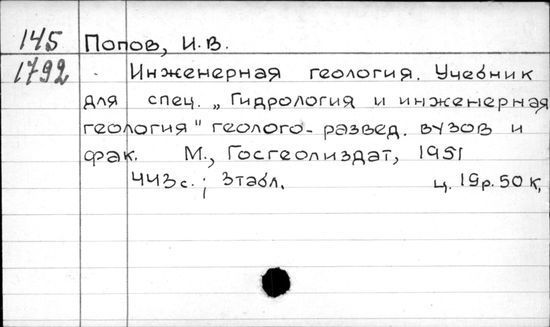 145 Попов, И.В.
1792 Инженерная геология. Учебник
для спец. „Гидрология и инженерная
геология" геолого-развед. вузов и
фак. М., Госгеолиздат, 1951
443с.; 3табл. ц. 19р. 50к,